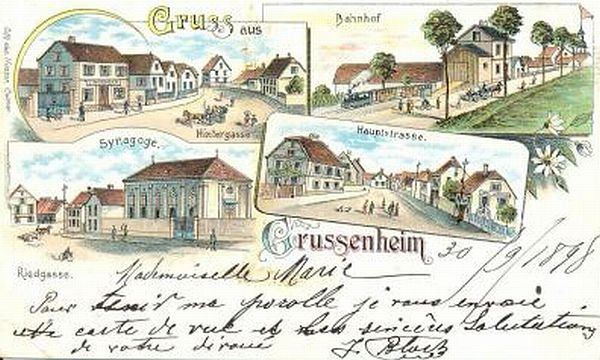 Gruss aus
Bahnhof
Hintergasse.
Hauptstrasse.
Synagoge.
Grussenheim
Riedgasse.
30/9/1898
Mademoiselle Marie
Pour tenir ma parolle je vous envoie
cette carte de vue et les sincères Salutations
de votre dévoué J. Bloch